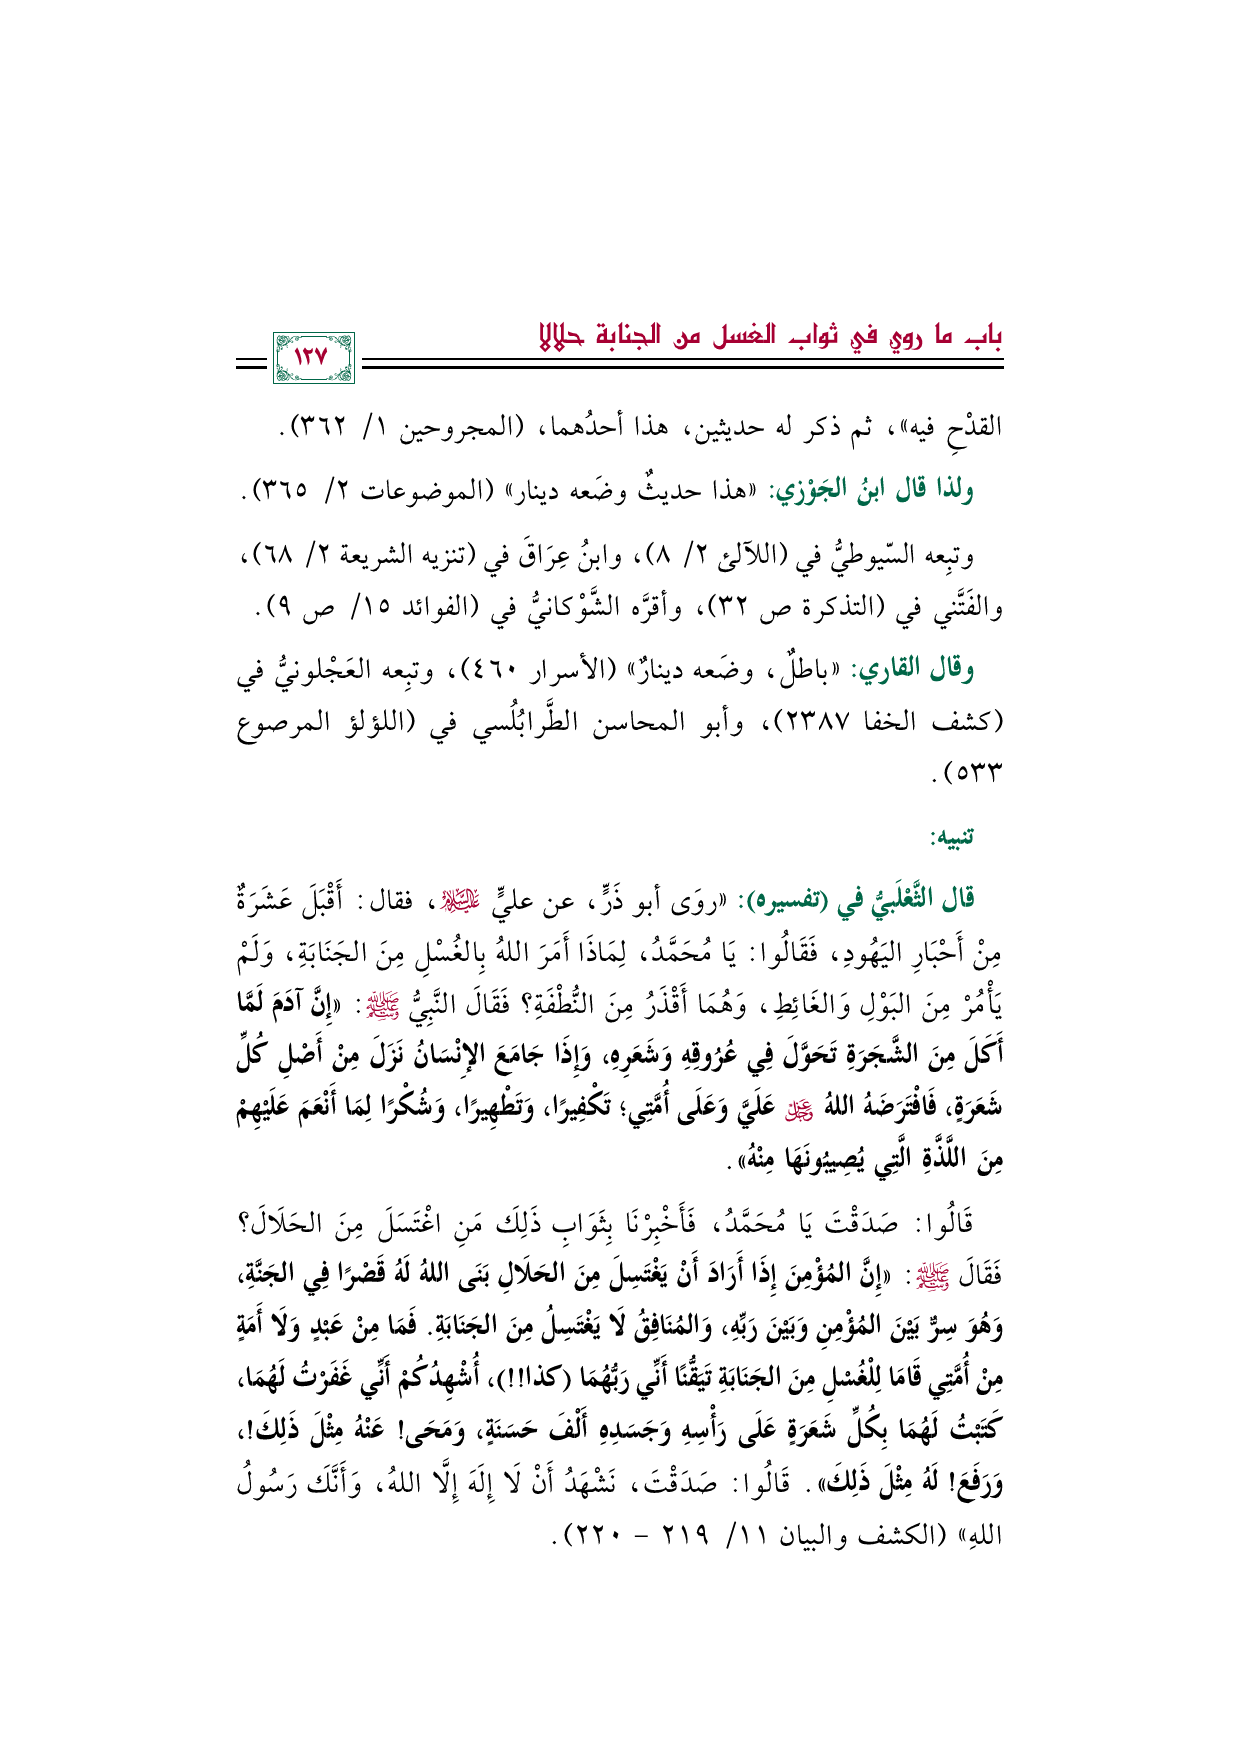 باب ما روي في ثواب الغسل من الجنابة حلالا
١٢٧
القدْحِ فيه»، ثم ذكر له حديثين، هذا أحدُهما، (المجروحين ١/ ٣٦٢).
ولذا قال ابنُ الجَوْزي: «هذا حديثٌ وضَعه دينار» (الموضوعات ٢/ ٣٦٥).
وتبِعه السّيوطيُّ في (اللآلئ ٢/ ٨)، وابنُ عِرَاقَ في (تنزيه الشريعة ٢/ ٦٨)،
والفَتَّني في (التذكرة ص ٣٢)، وأقرَّه الشَّوْكانيُّ في (الفوائد ١٥/ ص ٩).
وقال القاري: «باطلٌ، وضَعه دينارٌ» (الأسرار ٤٦٠)، وتبِعه العَجْلونيُّ في
(كشف الخفا ٢٣٨٧)، وأبو المحاسن الطَّرابُلُسي في (اللؤلؤ المرصوع
٥٣٣).
تنبيه:
قال الثَّعْلَبيُّ في (تفسيره): «روَى أبو ذَرٍّ، عن عليٍّ عَلَيْهِ السَّلَام، فقال: أَقْبَلَ عَشَرَةٌ
مِنْ أَحْبَارِ اليَهُودِ، فَقَالُوا: يَا مُحَمَّدُ، لِمَاذَا أَمَرَ اللهُ بِالغُسْلِ مِنَ الجَنَابَةِ، وَلَمْ
يَأْمُرْ مِنَ البَوْلِ وَالغَائِطِ، وَهُمَا أَقْذَرُ مِنَ النُّطْفَةِ؟ فَقَالَ النَّبِيُّ ﷺ: «إِنَّ آدَمَ لَمَّا
أَكَلَ مِنَ الشَّجَرَةِ تَحَوَّلَ فِي عُرُوقِهِ وَشَعَرِهِ، وَإِذَا جَامَعَ الإِنْسَانُ نَزَلَ مِنْ أَصْلِ كُلِّ
شَعَرَةٍ، فَافْتَرَضَهُ اللهُ عَزَّ وَجَلَّ عَلَيَّ وَعَلَى أُمَّتِي؛ تَكْفِيرًا، وَتَطْهِيرًا، وَشُكْرًا لِمَا أَنْعَمَ عَلَيْهِمْ
مِنَ اللَّذَّةِ الَّتِي يُصِيبُونَهَا مِنْهُ».
قَالُوا: صَدَقْتَ يَا مُحَمَّدُ، فَأَخْبِرْنَا بِثَوَابِ ذَلِكَ مَنِ اغْتَسَلَ مِنَ الحَلَالَ؟
فَقَالَ ﷺ: «إِنَّ المُؤْمِنَ إِذَا أَرَادَ أَنْ يَغْتَسِلَ مِنَ الحَلَالِ بَنَى اللهُ لَهُ قَصْرًا فِي الجَنَّةِ،
وَهُوَ سِرٌّ بَيْنَ المُؤْمِنِ وَبَيْنَ رَبِّهِ، وَالمُنَافِقُ لَا يَغْتَسِلُ مِنَ الجَنَابَةِ. فَمَا مِنْ عَبْدٍ وَلَا أَمَةٍ
مِنْ أُمَّتِي قَامَا لِلْغُسْلِ مِنَ الجَنَابَةِ تَيَقُّنًا أَنِّي رَبُّهُمَا (كذا!!)، أُشْهِدُكُمْ أَنِّي غَفَرْتُ لَهُمَا،
كَتَبْتُ لَهُمَا بِكُلِّ شَعَرَةٍ عَلَى رَأْسِهِ وَجَسَدِهِ أَلْفَ حَسَنَةٍ، وَمَحَى! عَنْهُ مِثْلَ ذَلِكَ!،
وَرَفَعَ! لَهُ مِثْلَ ذَلِكَ». قَالُوا: صَدَقْتَ، نَشْهَدُ أَنْ لَا إِلَهَ إِلَّا اللهُ، وَأَنَّكَ رَسُولُ
اللهِ» (الكشف والبيان ١١/ ٢١٩ – ٢٢٠).